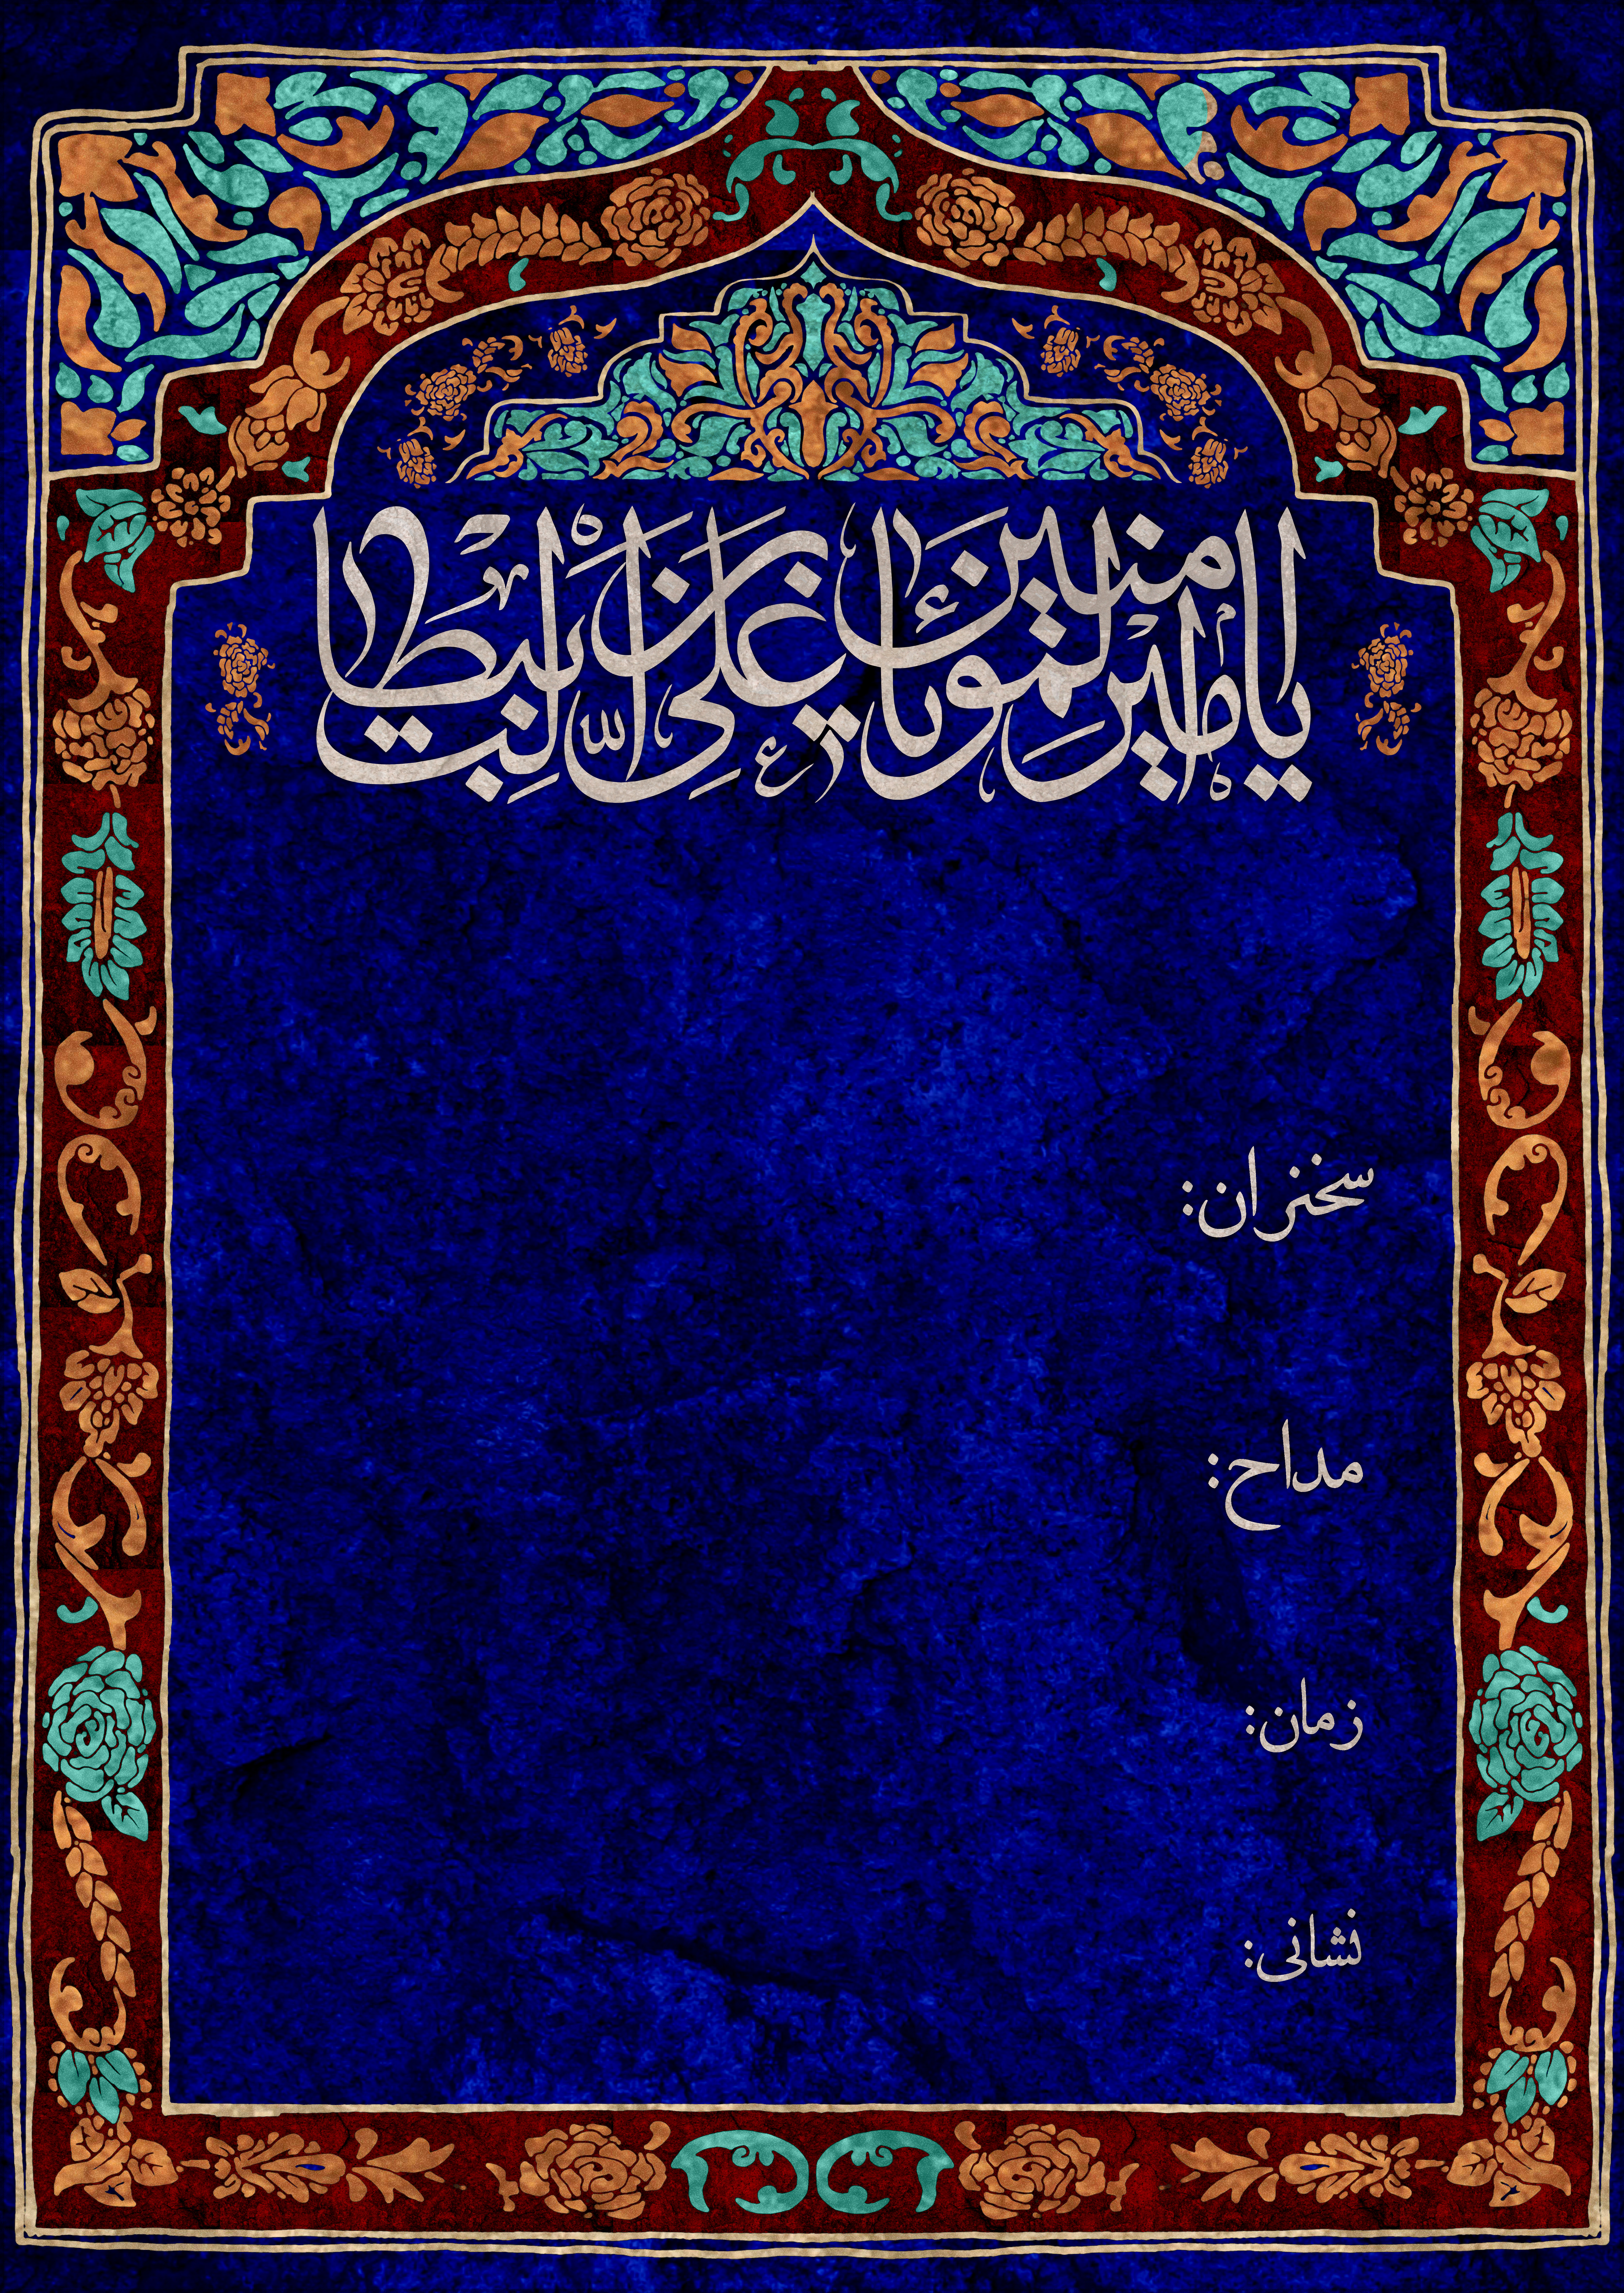 یا امیرالمؤمنین یا علی بن ابیطالب
سخنران:
مداح:
زمان:
نشانی: